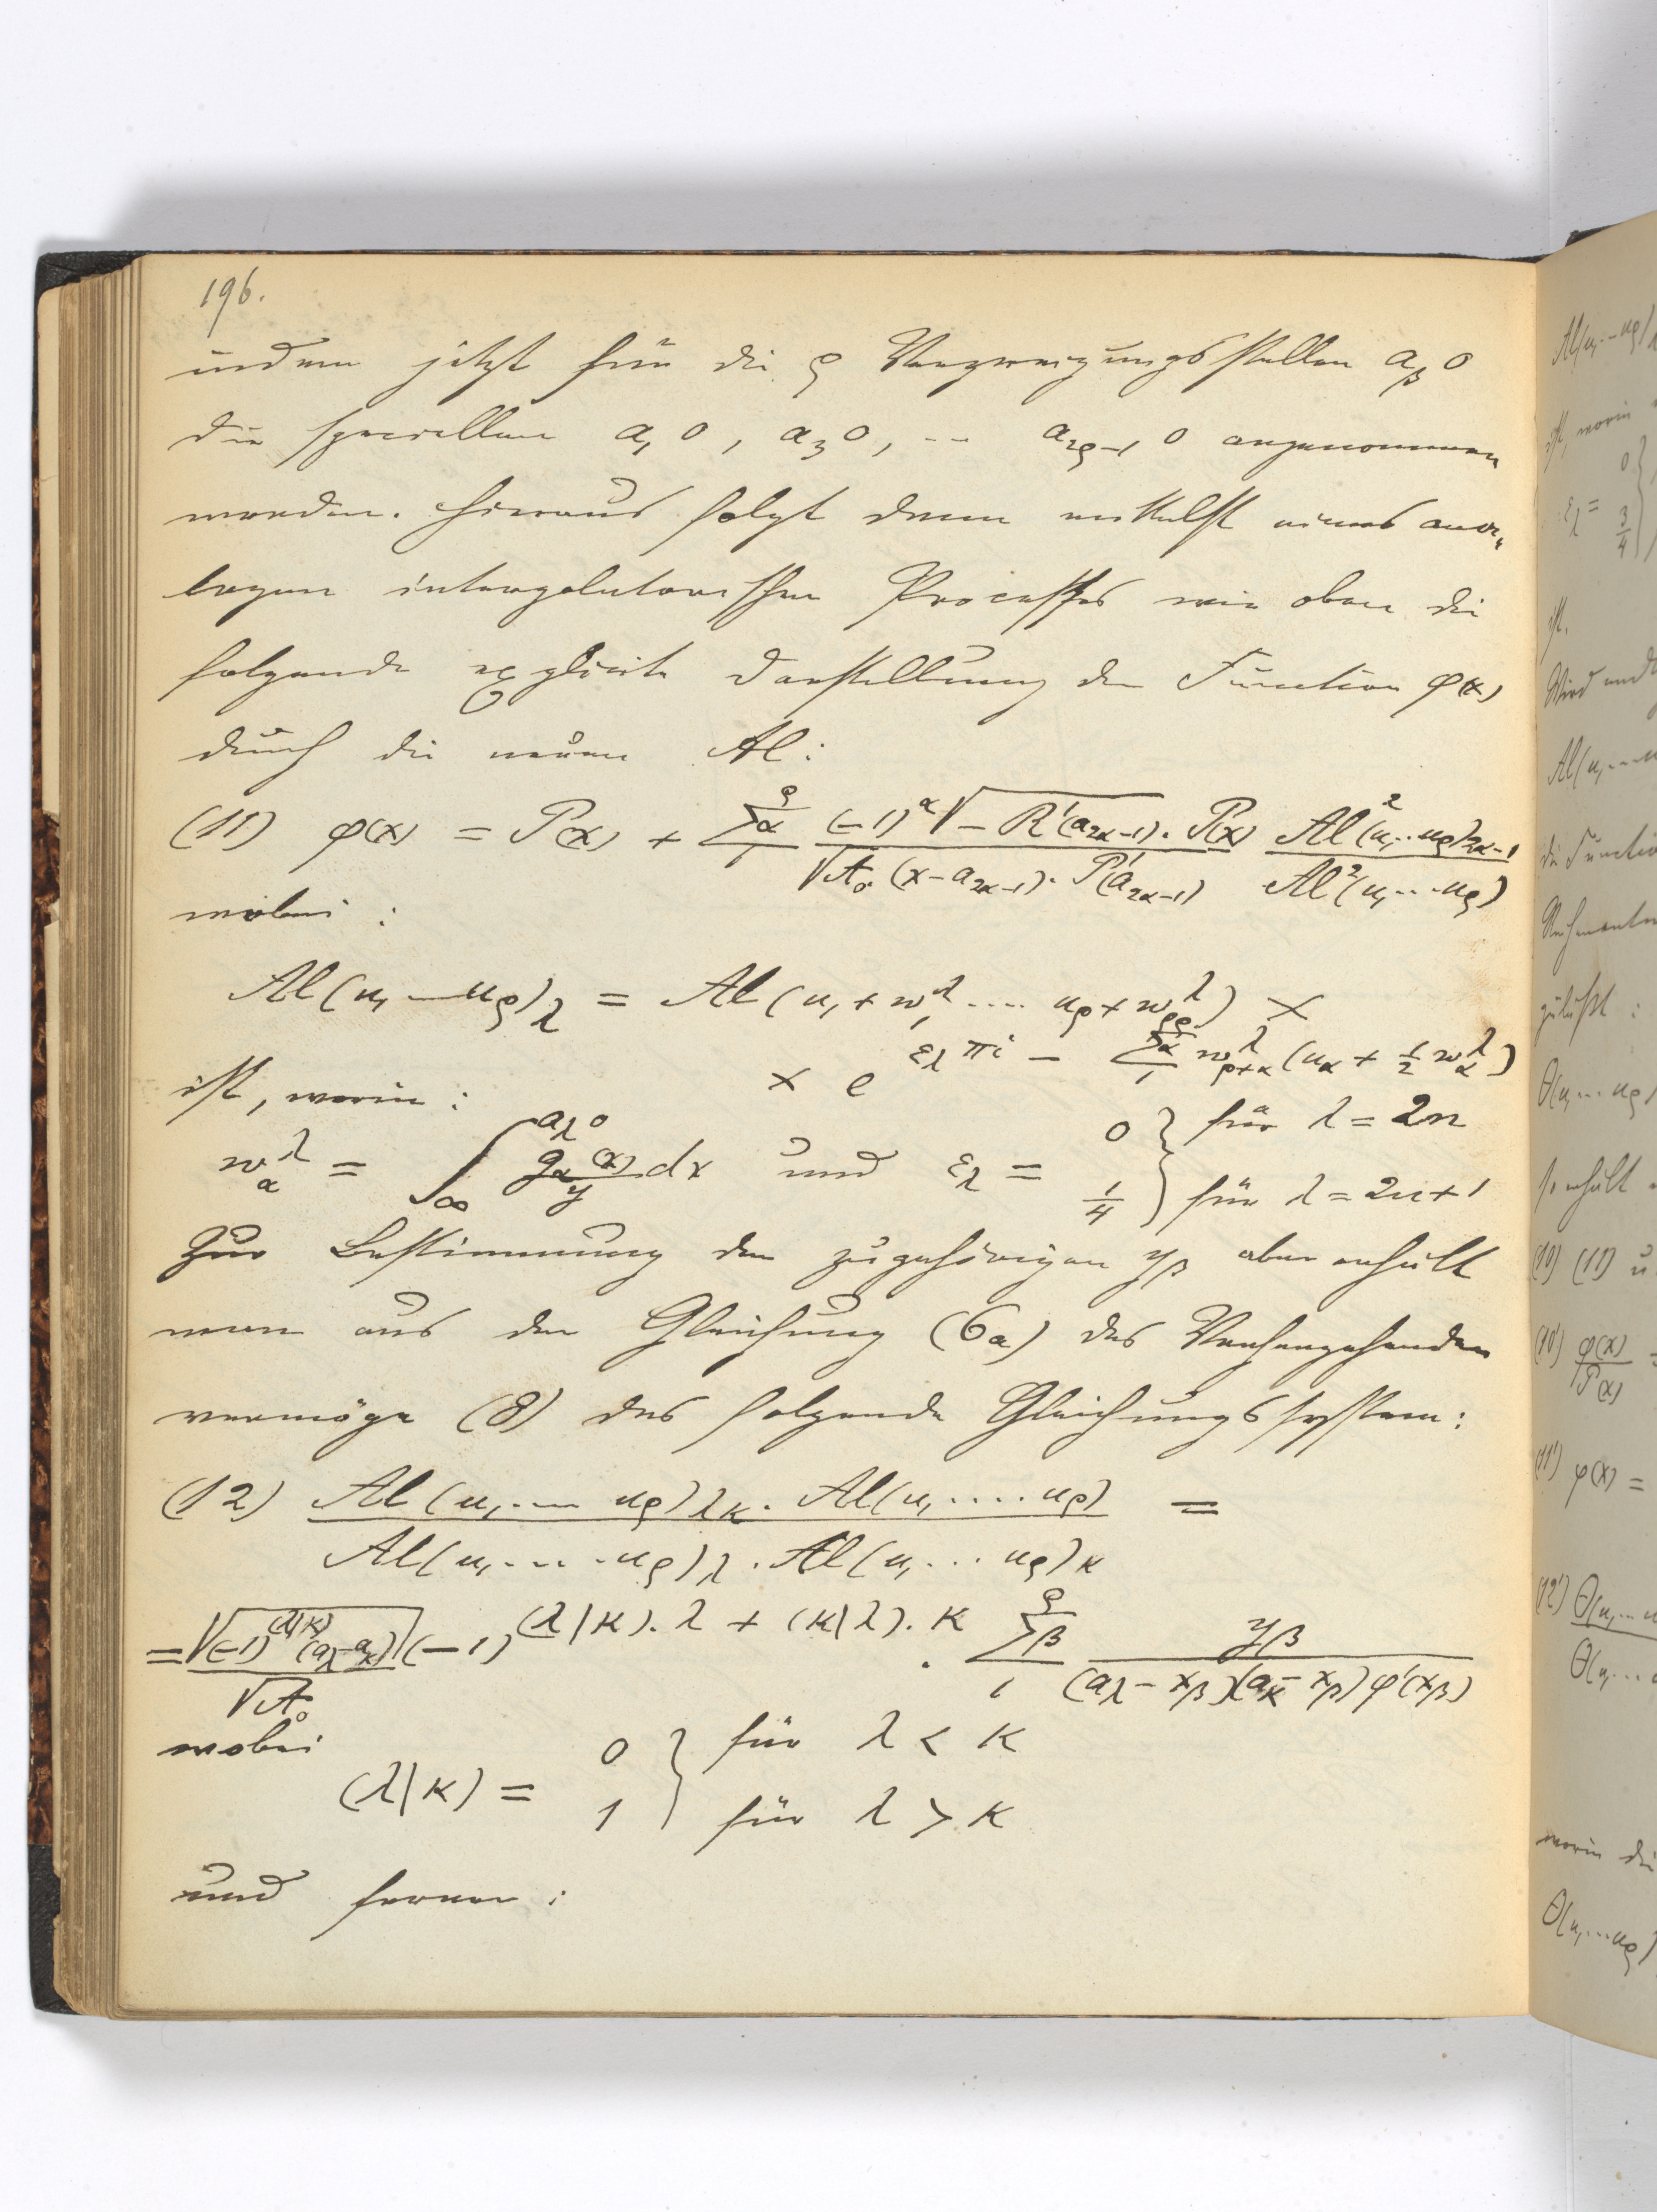 196.
indem jetzt für die ρ Verzweigungsstellen a_β 0
die speciellen a_1 0, a_3 0, -- a_{2ρ-1} 0 angenommen
werden. Hieraus folgt dann mittelst eines ana-
logen interpolatorischen Processes wie oben die
folgende explicite Darstellung der Function φ(x)
durch die neuen Al:
(11) φ(x) = P(x) + \sum_1^ρ{}_α \frac{(-1)^α \sqrt{-R'(a_{2α-1})} . P(x)}{\sqrt{A_0} (x-a_{2α-1}) . P'(a_{2α-1})} \frac{Al^2(u_1..u_ρ)_{2α-1}}{Al^2(u_1...u_ρ)}
wobei :
Al(u_1 -- u_ρ)_λ = Al(u_1 + w_1^λ .... u_ρ + w_ρ^λ) ×
× e^{ε_λ πi - \sum_1^ρ{}_α w_{ρ+α}^λ (u_α + \frac{1}{2} w_α^λ)}
ist, worin :
w_α^λ = \int_∞^{a_λ 0} \frac{g_α(x)}{y} dx und ε_λ = 0 } für λ = 2n
\frac{1}{4} } für λ = 2n+1
Zur Bestimmung der zugehörigen y_β aber erhält
man aus der Gleichung (6a) des Vorhergehenden
vermöge (8) das folgende Gleichungssystem:
(12) \frac{Al(u_1.-- u_ρ)_{λκ} . Al(u_1.....u_ρ)}{Al(u_1....u_ρ)_λ . Al(u_1...u_ρ)_κ} =
= \frac{\sqrt{(-1)^{(λ|κ)}(a_λ-a_κ)}}{\sqrt{A_0}} (-1)^{(λ|κ).λ + (κ|λ).κ} . \sum_1^ρ{}_β \frac{y_β}{(a_λ-x_β)(a_κ-x_β)φ'(x_β)}
wobei
(λ|κ) = 0 } für λ < κ
1 } für λ > κ
und ferner :
Al(u_1..u_ρ)
ist, worin
ε_λ = 0 }
\frac{3}{4} }
ist.
Wird
Al(u_1....
die Functio
so erhält
(10) (11) u
(10') \frac{φ(x)}{P(x)} =
(11') φ(x) =
(12')
worin die
Θ(u_1...u_ρ)